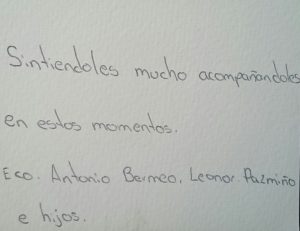 Sintiendoles mucho acompañandoles
en estos momentos.
Eco. Antonio Bermeo, Leonor Pazmiño
e hijos.